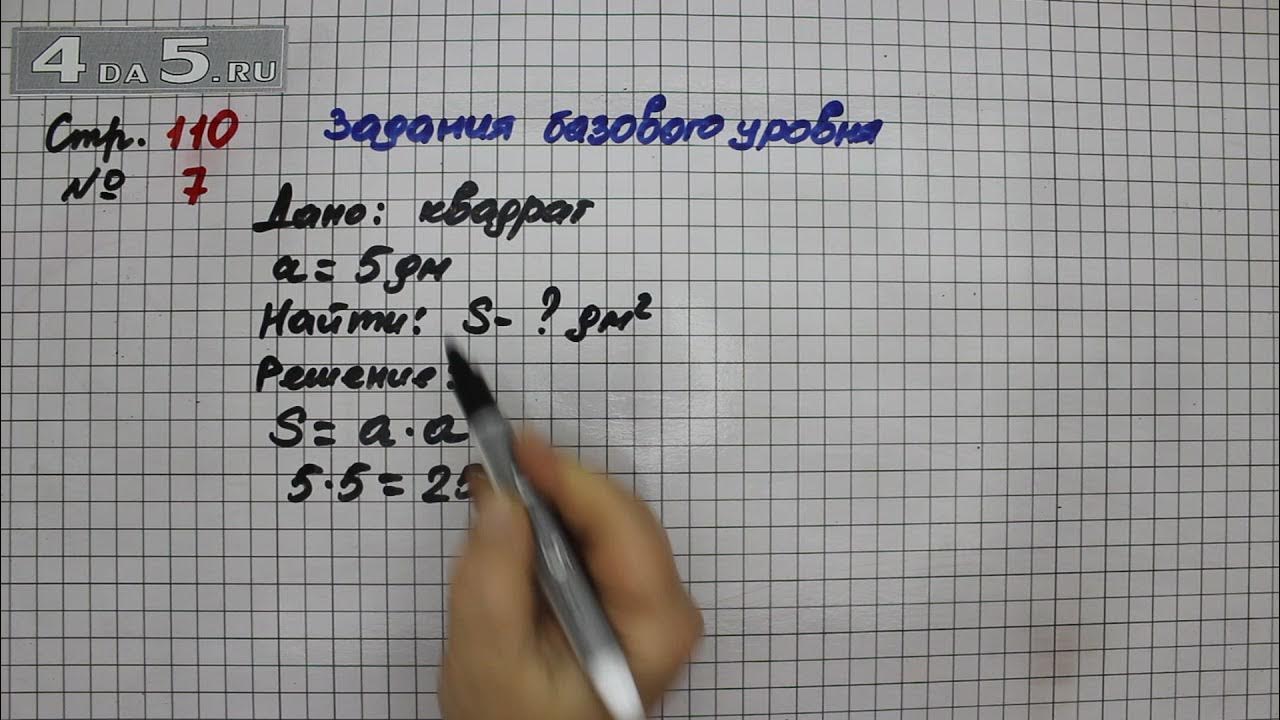 4DA5.RU
Стр. 110
Задания базового уровня
№ 7
Дано: квадрат
a = 5 дм
Найти: S - ? дм²
Решение:
S = a · a
5 · 5 = 25